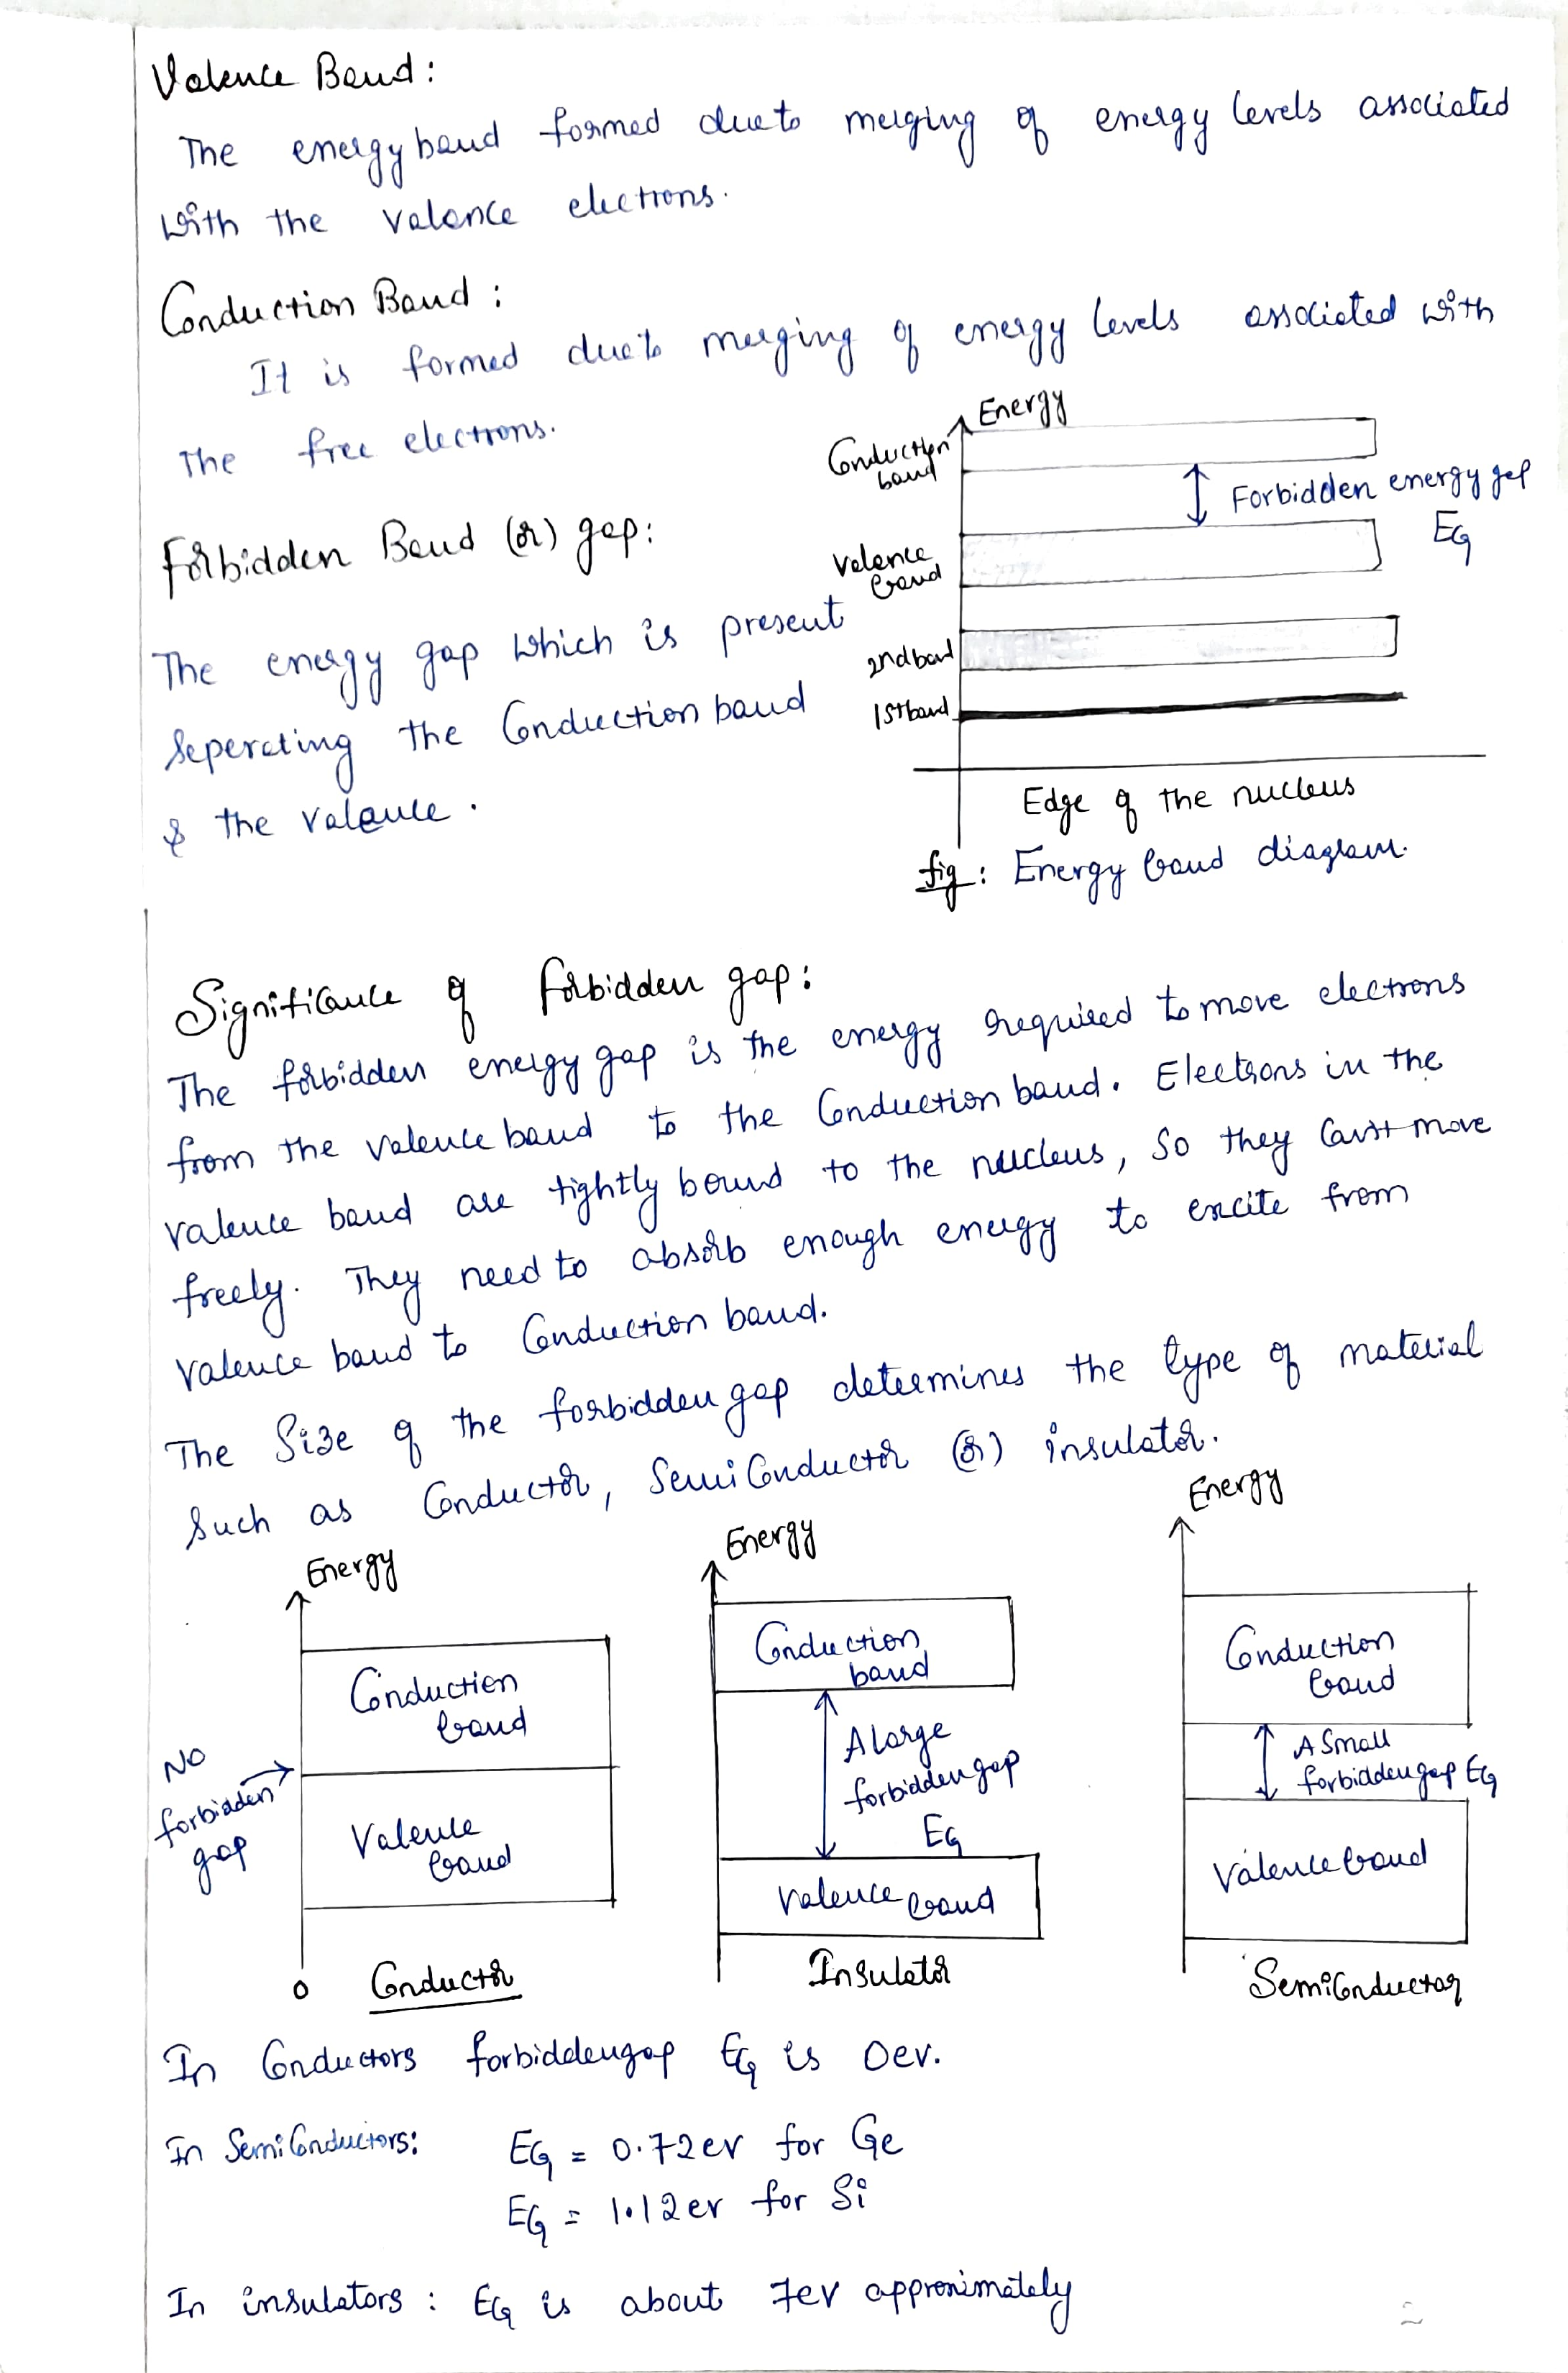 Valence Band:
The energy band formed due to merging of energy levels associated
with the valence electrons.
Conduction Band:
It is formed due to merging of energy levels associated with
The free electrons.
Energy
Conduction
band
Forbidden energy gap
EG
Valence
band
2nd band
1st band
Edge of the nucleus
fig: Energy band diagram.
Forbidden Band (or) gap:
The energy gap which is present
Seperating the Conduction band
& the valence.
Significance of forbidden gap:
The forbidden energy gap is the energy required to move electrons
from the valence band to the Conduction band. Electrons in the
valence band are tightly bound to the nucleus, so they can't move
freely. They need to absorb enough energy to excite from
valence band to Conduction band.
The Size of the forbidden gap determines the type of material
Such as Conductor, Semi Conductor (or) insulator.
Energy
Conduction
band
No
forbidden
gap
Valence
band
0
Conductor
Energy
Conduction
band
A large
forbidden gap
EG
Valence band
Insulator
Energy
Conduction
band
A Small
forbidden gap EG
Valence band
Semiconductor
In Conductors forbidden gap EG is 0ev.
In Semi Conductors: EG = 0.72ev for Ge
EG = 1.12ev for Si
In insulators: EG is about 7ev approximately